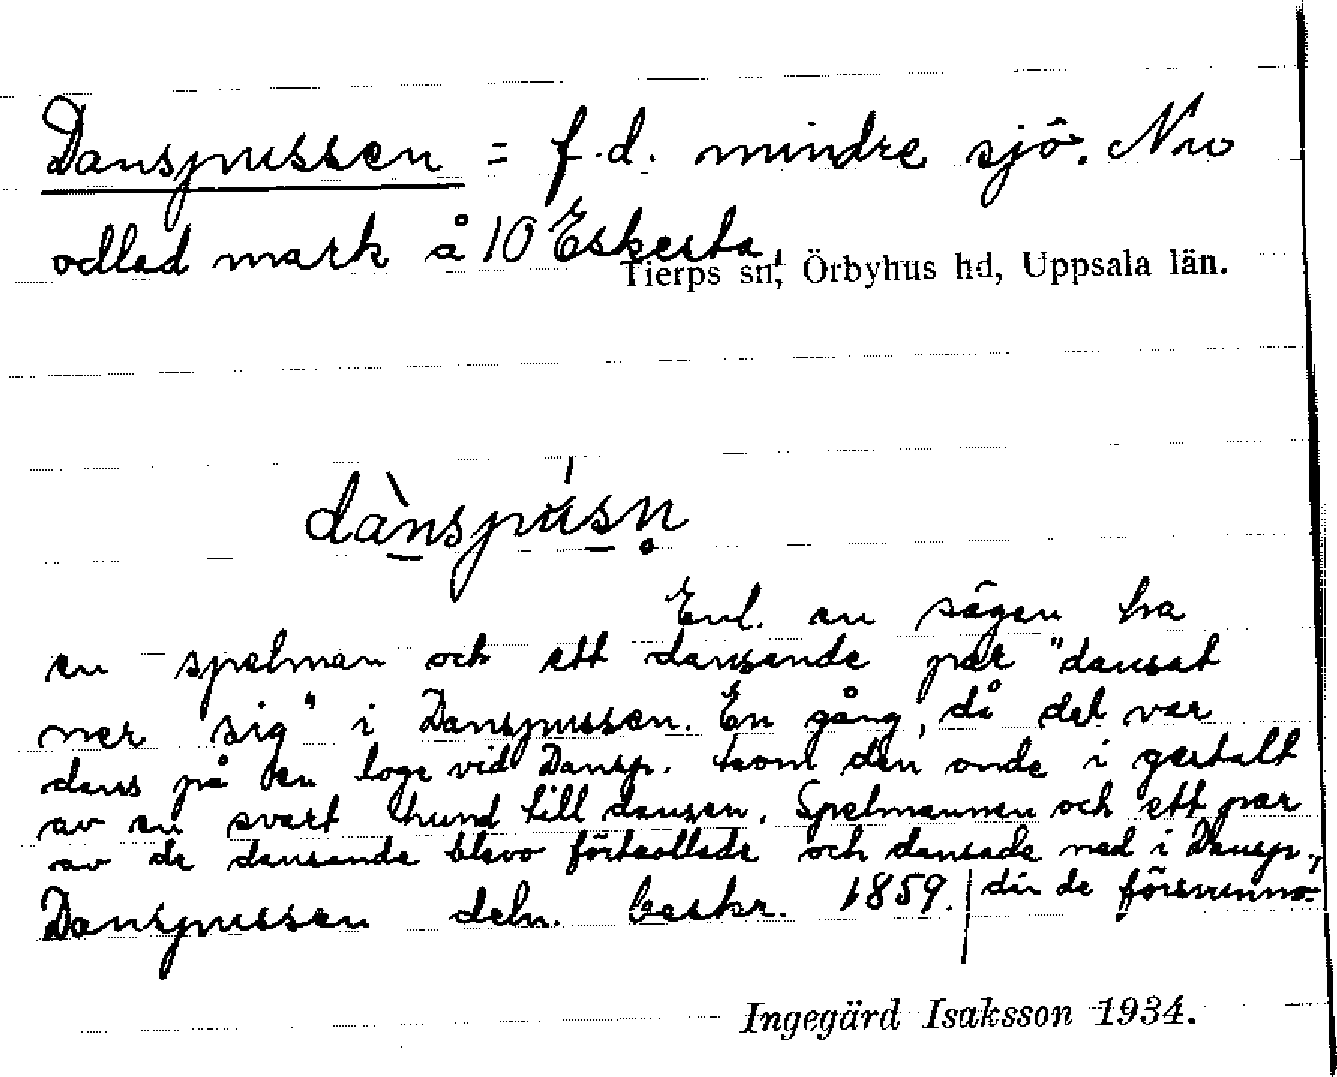 Danspussen = f.d. mindre sjö. Nu
odlad mark å 10 Eskesta,
Tierps sn, Örbyhus hd, Uppsala län.
dànspúsn
Enl. en sägen ha
en spelman och ett dansande par "dansat
ner sig" i Danspussen. En gång, då det var
dans på en loge vid Dansp. kom den onde i gestalt
av en svart hund till dansen. Spelmannen och ett par
av de dansande blevo förtrollade och dansade ned i Dansp.,
där de försvunno.
Danspussen deln. beskr. 1859.
Ingegärd Isaksson 1934.